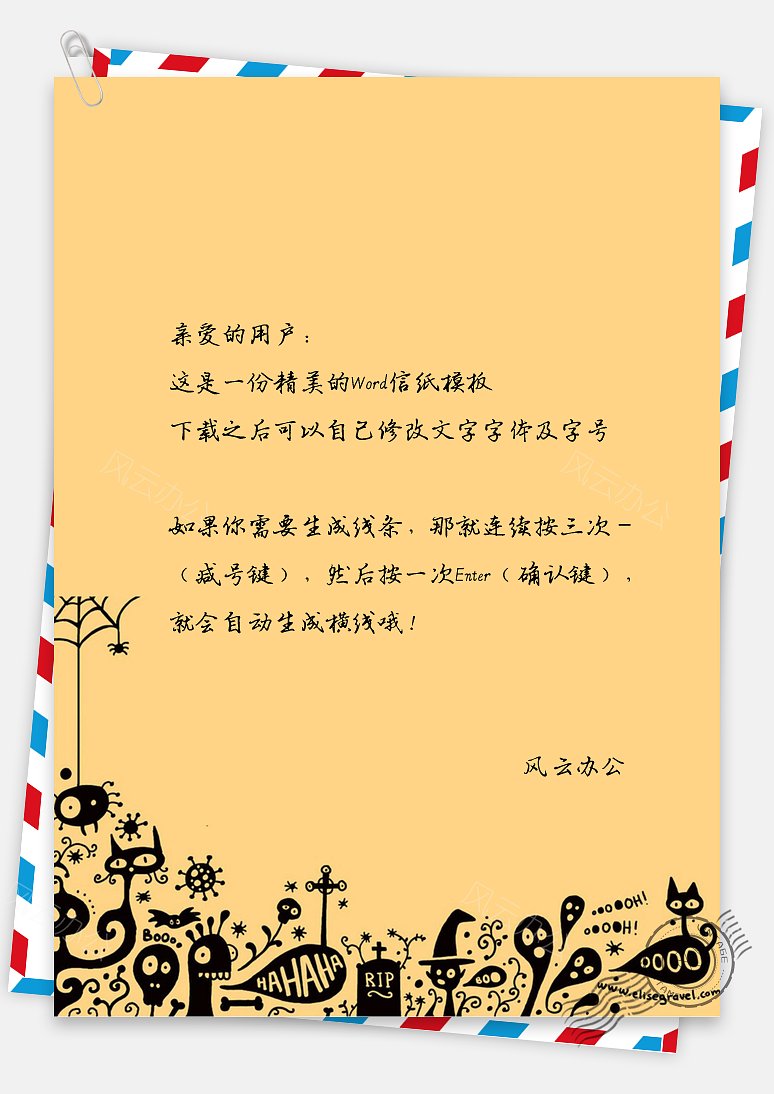 亲爱的用户：
这是一份精美的Word信纸模板
下载之后可以自己修改文字字体及字号
风云办公
风云办公
如果你需要生成线条，那就连续按三次－
（减号键），然后按一次Enter（确认键），
就会自动生成横线哦！
风云办公
风云办公
BOO...
HAHAHA
RIP
BOO
...OOOOH!
..OOOH!
OOOO
www.elisegravel.com